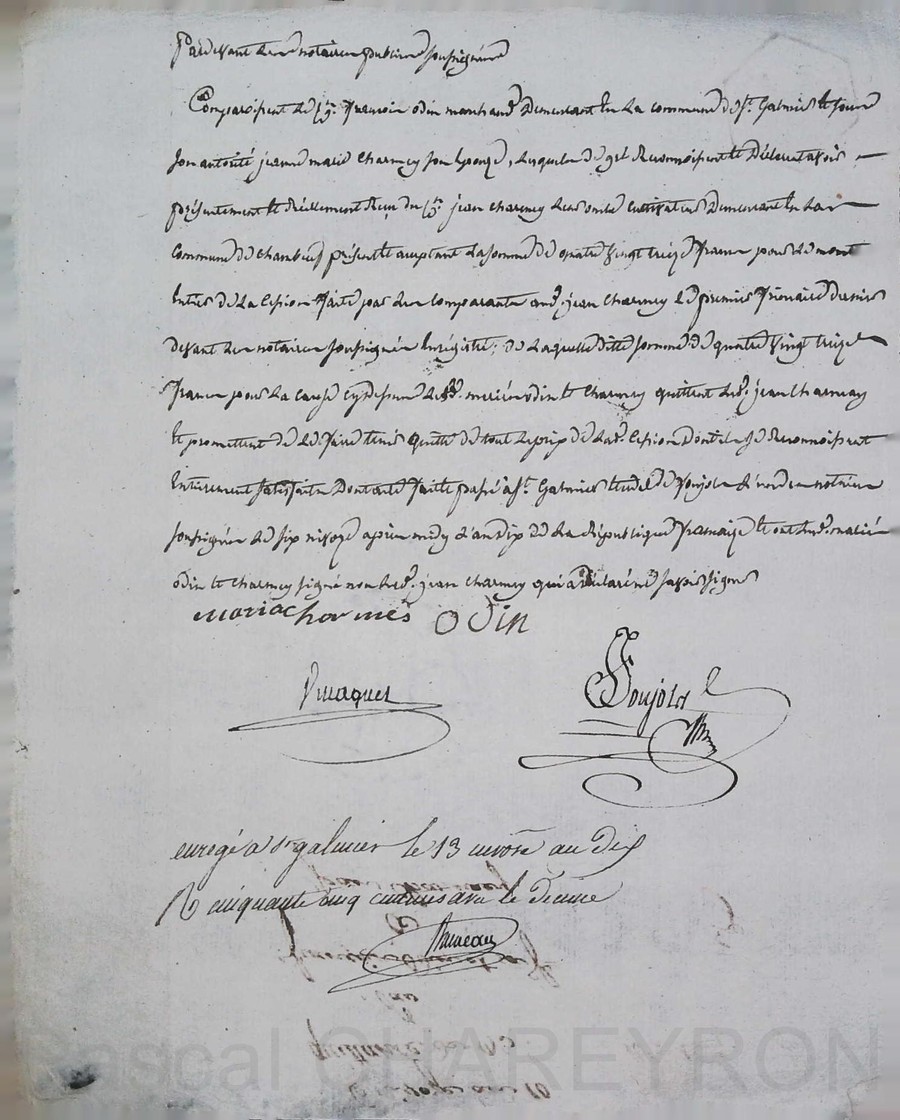 Pardevant les notaires publics soussignés
Comparoissent le Cen. François odin marchand Demeurant en la commune de St. Galmier et sous
son autorité jeanne marie Charmey son Epouze, Lesquels de gré Reconnoissent et Déclarent avoir
présentement et Réellement Reçu du Cen. jean Charmey cultivateur Demeurant en la
commune de Chambeuf présent et acceptant La somme de quatre vingt treize francs pour le mont
Entier de la Cession faite par les Comparants aud. jean Charmey le premier frimaire dernier
devant les notaires soussignés Enregistré; de Laquelle ditte somme de quatre vingt treize
francs pour la cause cydessus Lesd. mariés odin et Charmey quittent led. jean Charmey
et promettent de le faire tenir quitte de tout Le prix de Lad. Cession Dont ils se Reconnoissent
Entierement satisfaits Dont acte fait et passé à St. Galmier Etude de Poujola L'un des notaires
soussignés Le six nivoze après midy L'an dix de La République française et ont Lesd. mariés
odin et Charmey signé non Led. jean Charmey qui a déclaré ne savoir signer
maria charmes Odin
Poujola
enregé a St galmier le 13 nivose an dix
R cinquante cinq centimes avec le Decime
Pascal CHAREYRON